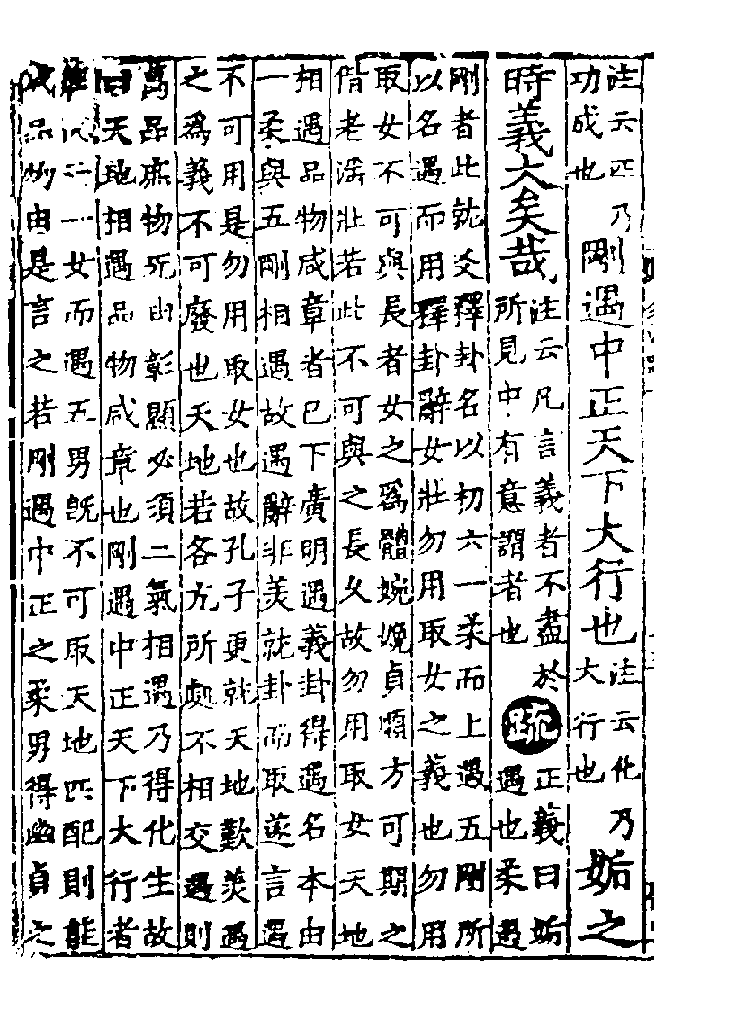 注云匹乃功成也剛遇中正天下大行也注云化乃大行也姤之
時義大矣哉注云凡言義者不盡於所見中有意謂者也疏正義曰姤遇也柔遇
剛者此就爻釋卦名以初六一柔而上遇五剛所
以名遇而用釋卦辭女壯勿用取女之義也勿用
取女不可與長者女之爲體婉娩貞順方可期之
偕老淫壯若此不可與之長久故勿用取女天地
相遇品物咸章者已下廣明遇義卦得遇名本由
一柔與五剛相遇故遇辭非美就卦而取遂言遇
不可用是勿用取女也故孔子更就天地歎美遇
之爲義不可廢也天地若各亢所處不相交遇則
萬品庶物无由彰顯必須二氣相遇乃得化生故
曰天地相遇品物咸章也剛遇中正天下大行者
莊氏云一女而遇五男旣不可取天地匹配則能
成品物由是言之若剛遇中正之柔男得幽貞之